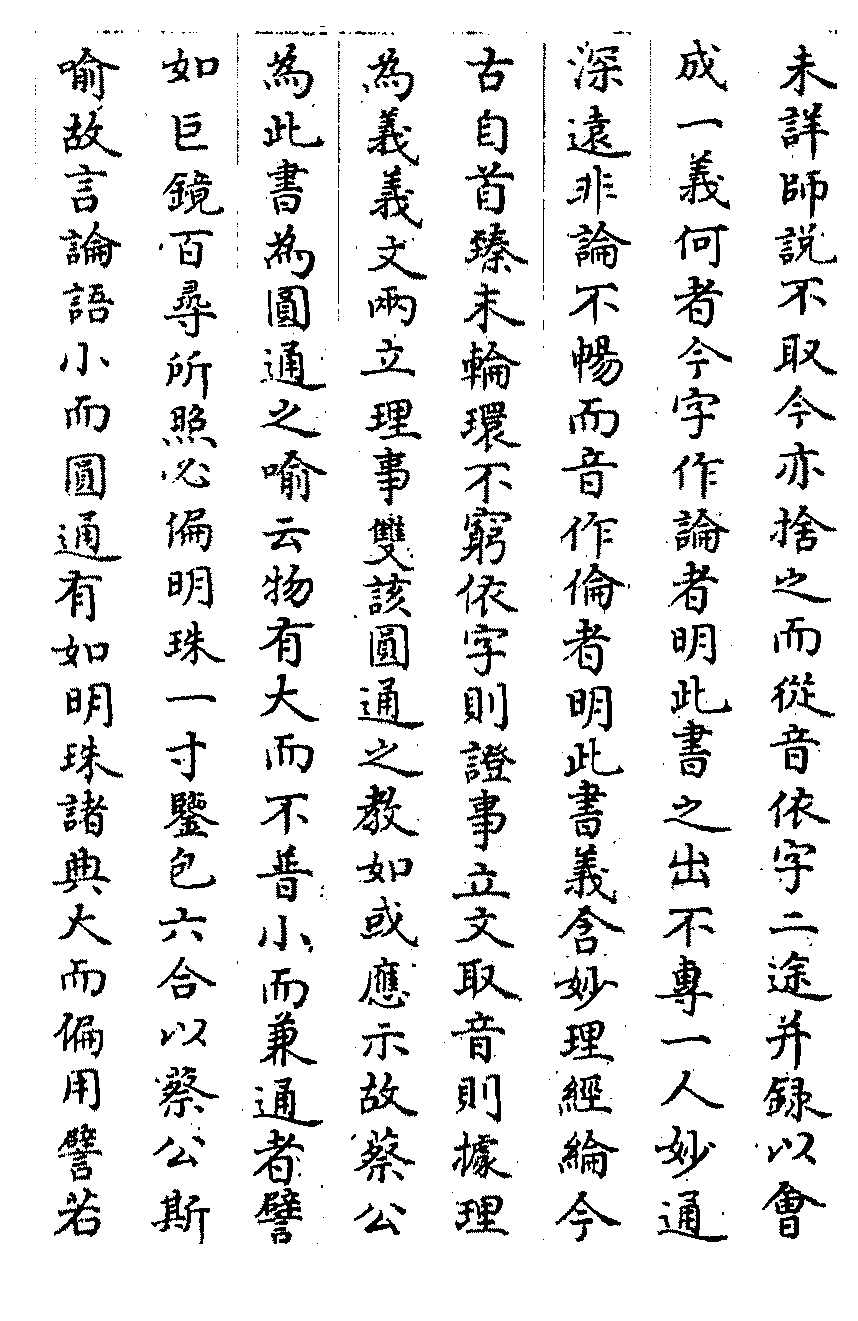 未詳師說不取今亦捨之而從音依字二途并録以會
成一義何者今字作論者明此書之出不專一人妙通
深遠非論不暢而音作倫者明此書義含妙理經綸今
古自首臻末輪環不窮依字則證事立文取音則據理
為義義文兩立理事雙該圓通之教如或應示故蔡公
為此書為圓通之喻云物有大而不普小而兼通者譬
如巨鏡百尋所照必偏明珠一寸鑒包六合以蔡公斯
喻故言論語小而圓通有如明珠諸典大而偏用譬若